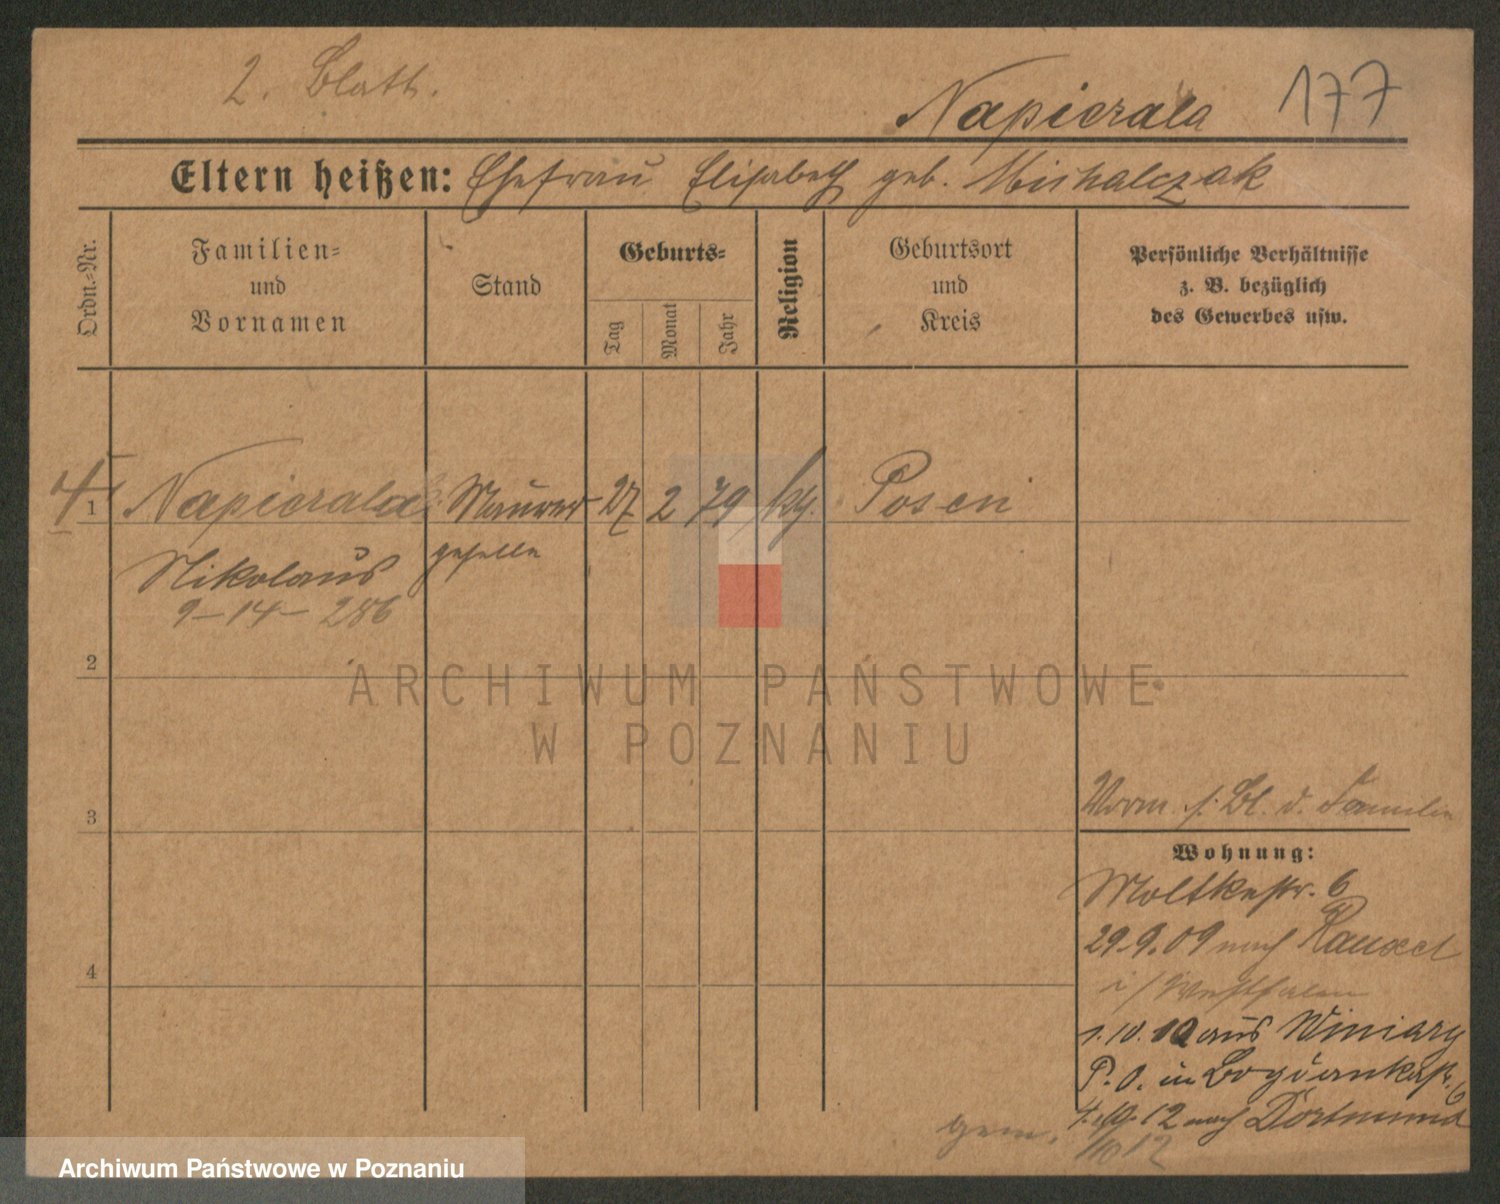 2. Blatt.
Napierala 177
Eltern heißen: Ehefrau Elisabeth geb. Michalczak
Ordn.-Nr.
Familien-
und
Vornamen
Stand
Geburts-
Tag
Monat
Jahr
Religion
Geburtsort
und
Kreis
Persönliche Verhältnisse
z. B. bezüglich
des Gewerbes usw.
1 Napierala Maurer 27 2 79 kg. Posen
Nikolaus geselle
9-14-286
2
3
4
ARCHIWUM PAŃSTWOWE
W POZNANIU
Vorm. s. Bl. d. Familie
Wohnung:
Moltkestr. 6
29.9.09 nach Rauxel
i/ Westfalen
1.10.10 aus Winiary
P. O. in Bogdankastr. 6
4. 10. 12 nach Dortmund
gem. /10 12
Archiwum Państwowe w Poznaniu